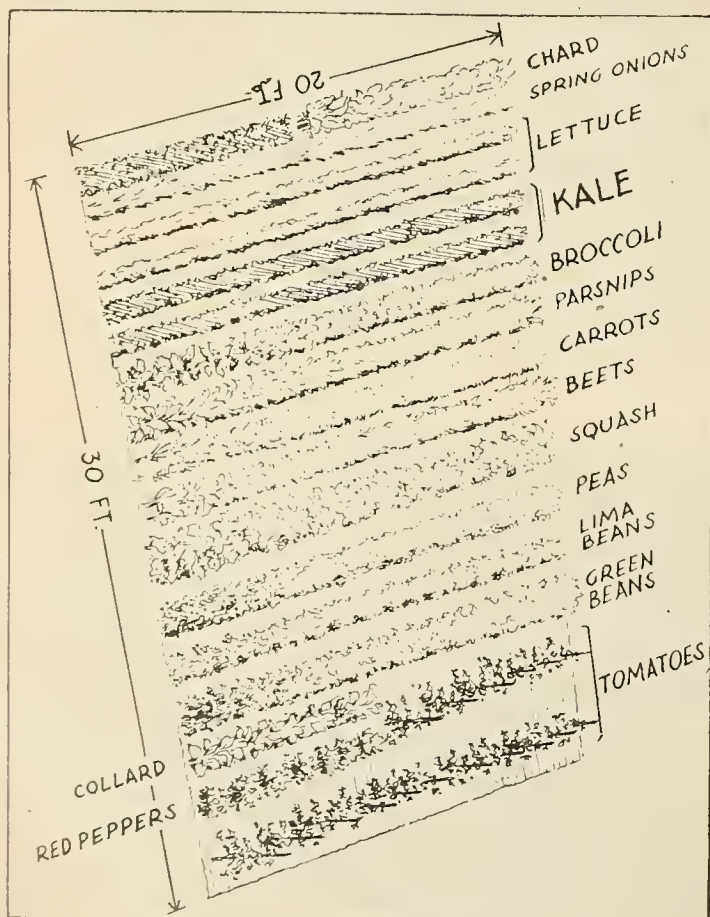 20 FT.
CHARD
SPRING ONIONS
LETTUCE
KALE
BROCCOLI
PARSNIPS
CARROTS
BEETS
SQUASH
PEAS
LIMA
BEANS
GREEN
BEANS
TOMATOES
30 FT.
COLLARD
RED PEPPERS